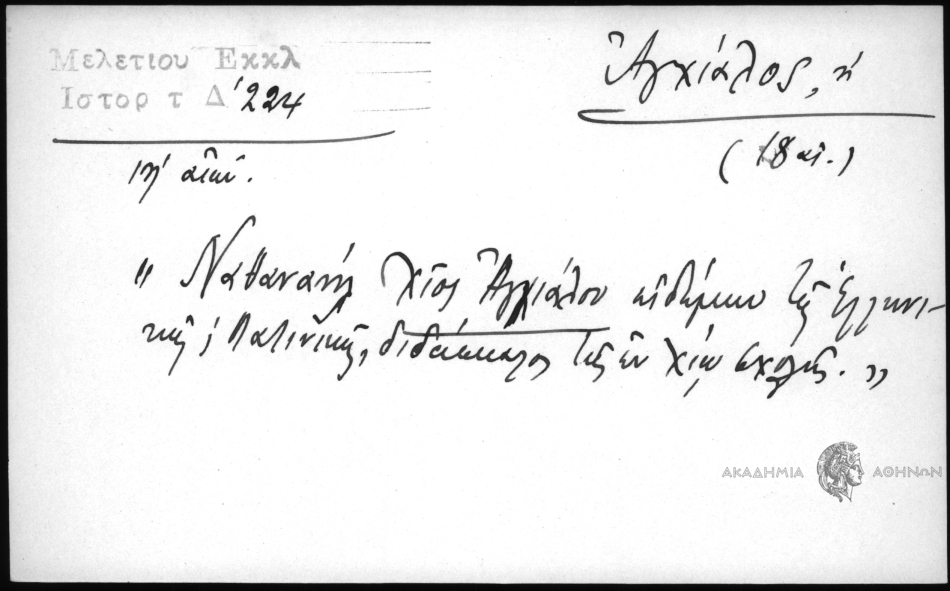 Μελετιου Εκκλ
Ιστορ τ Δ' 224
Ἀγχίαλος, ἡ
(18 αἰ.)
ιη' αἰών.
" Ναθαναὴλ Χῖος Ἀγχιάλου εἰδήμων τῆς Ἑλληνι-
κῆς καὶ Λατινικῆς, διδάσκαλος τῆς ἐν Χίῳ Σχολῆς. "
ΑΚΑΔΗΜΙΑ ΑΘΗΝΩΝ